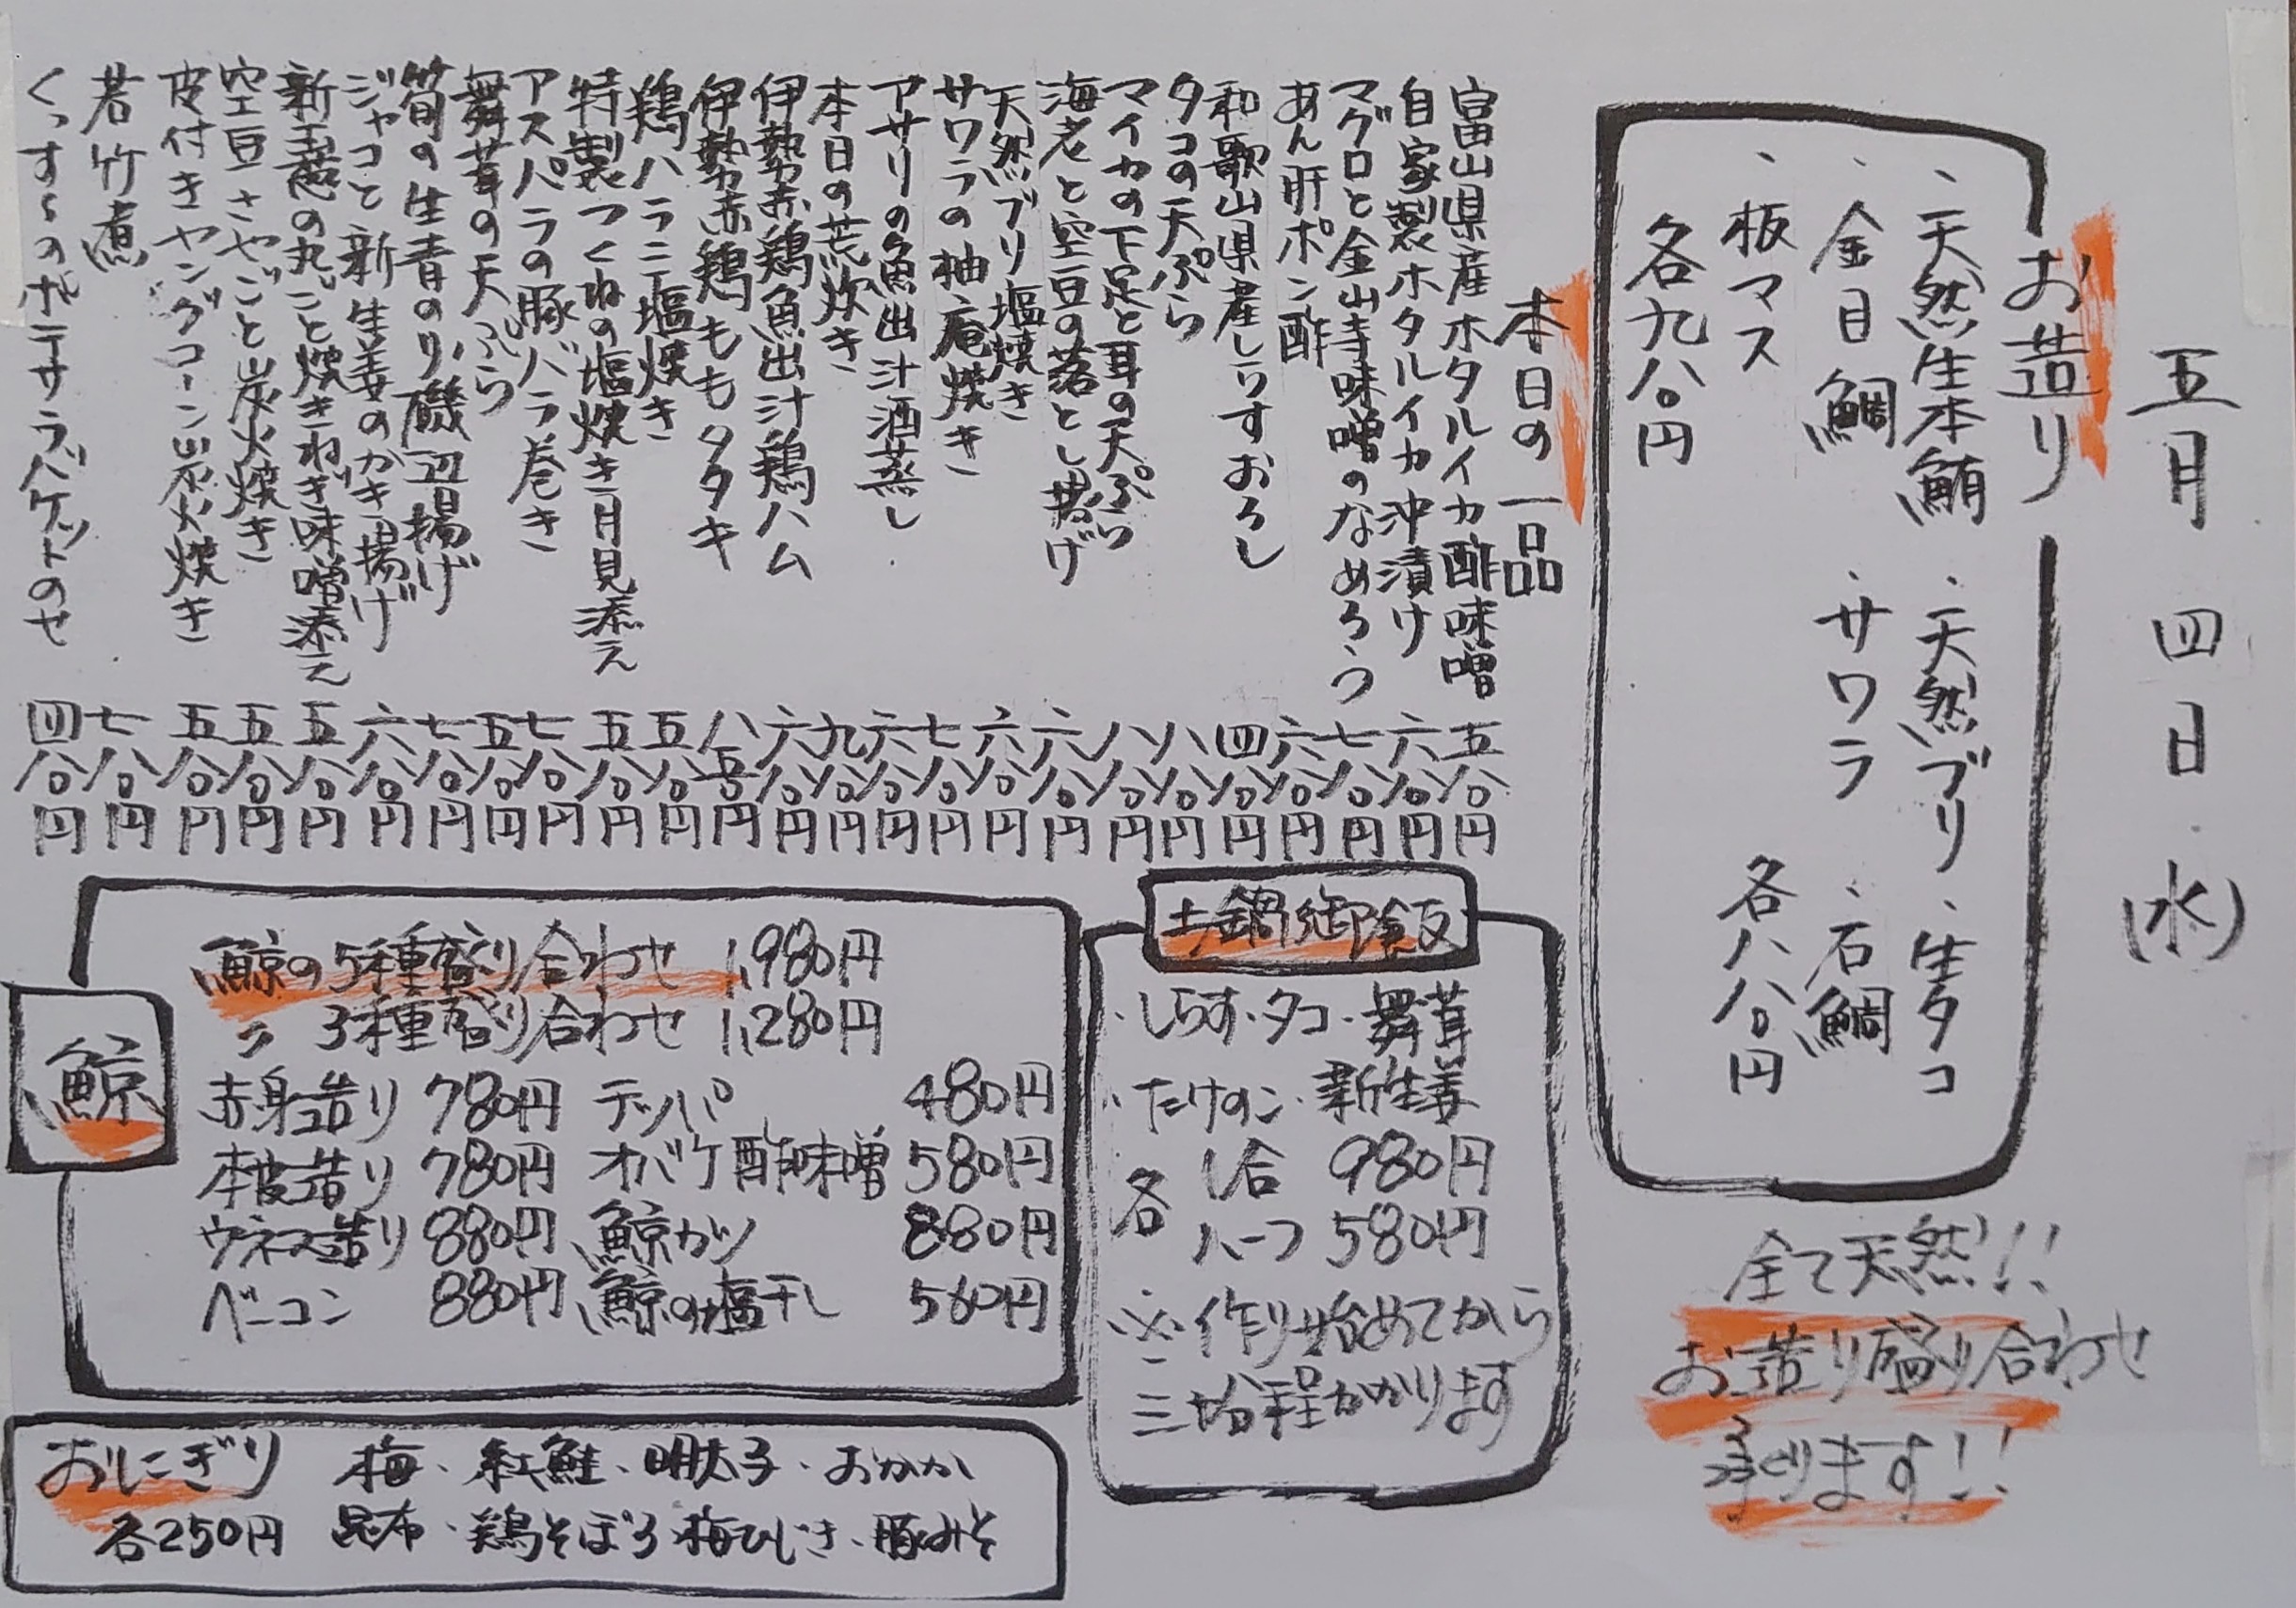 五月四日(水)
お造り
、天然生本鮪、天然ブリ、生タコ
、金目鯛、サワラ、石鯛
、板マス 各八八〇円
各九八〇円
全て天然!!
お造り盛り合わせ
承ります!!
本日の一品
富山県産ホタルイカ酢味噌 五八〇円
自家製ホタルイカ沖漬け 六八〇円
マグロと金山寺味噌のなめろう 七八〇円
あん肝ポン酢 六八〇円
和歌山県産しらすおろし 四八〇円
タコの天ぷら 八八〇円
マイカの下足と耳の天ぷら 八八〇円
海老と空豆の落とし揚げ 六八〇円
天然ブリ塩焼き 六八〇円
サワラの柚庵焼き 七八〇円
アサリの魚出汁酒蒸し 六八〇円
本日の荒炊き 九八〇円
伊勢赤鶏魚出汁鶏ハム 六八〇円
伊勢赤鶏ももタタキ 八五〇円
鶏ハラミ塩焼き 五八〇円
特製つくねの塩焼き月見添え 五八〇円
アスパラの豚バラ巻き 七八〇円
舞茸の天ぷら 五八〇円
筍の生青のり磯辺揚げ 七八〇円
ジャコと新生姜のかき揚げ 六八〇円
新玉葱の丸ごと焼きねぎ味噌添え 五八〇円
空豆さやごと炭火焼き 五八〇円
皮付きヤングコーン炭火焼き 五八〇円
若竹煮 七八〇円
くっすーのポテサラバケットのせ 四八〇円
土鍋御飯
・しらす・タコ・舞茸
・たけのこ・新生姜
各 1合 980円
ハーフ 580円
※作り始めてから
三十分程かかります
鯨
鯨の5種盛り合わせ 1,980円
〃 3種盛り合わせ 1,280円
赤身造り 780円 テッパ 480円
本皮造り 780円 オバケ酢味噌 580円
ウネス造り 880円 鯨カツ 880円
ベーコン 880円 鯨の塩干し 560円
おにぎり 梅・紅鮭・明太子・おかか
各250円 昆布・鶏そぼろ 梅ひじき・豚みそ